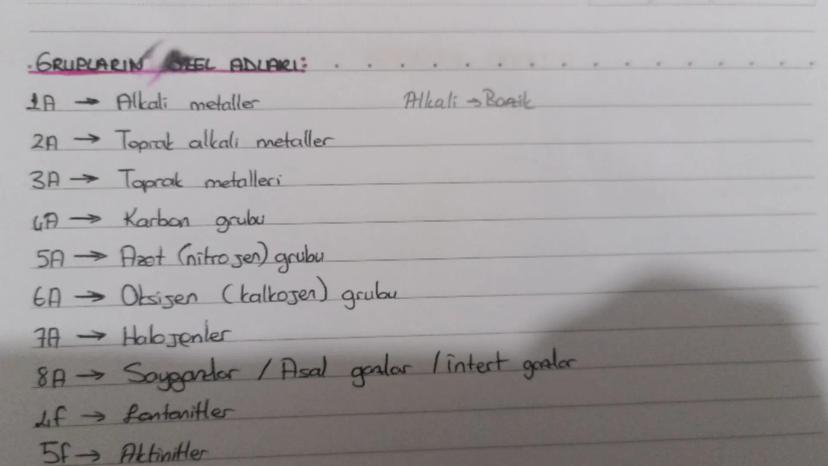 GRUPLARIN ÖZEL ADLARI:
1A → Alkali metaller Alkali → Bazik
2A → Toprak alkali metaller
3A → Toprak metalleri
4A → Karbon grubu
5A → Azot (nitrojen) grubu
6A → Oksijen (kalkojen) grubu
7A → Halojenler
8A → Soygazlar / Asal gazlar / intert gazlar
4f → Lantanitler
5f → Aktinitler